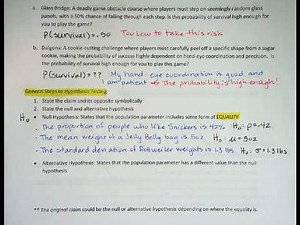 a. Glass Bridge: A deadly game obstacle course where players must step on seemingly random glass
panels, with a 50% chance of falling through each step. Is this probability of survival high enough for
you to play the game?
P(survival) = .50 Too Low to take this risk
b. Dalgona: A cookie cutting challenge where players must carefully peel off a specific shape from a sugar
cookie, making the probability of success highly dependent on hand-eye coordination and precision. Is
the probability of survival high enough for you to play the game?
P(survival) = ?? My hand-eye coordination is good and
I am patient → The probability is high enough!
General Steps to Hypothesis Testing
1. State the claim and its opposite symbolically
2. State the null and alternative hypothesis
H₀ • Null Hypothesis: States that the population parameter includes some form of EQUALITY
- The proportion of people who like Snickers is 42% H₀: p = .42
- The mean weight of a Jelly Belly bag is 5oz H₀: μ = 5oz
- The standard deviation of Rottweiler weights is 1.3 lbs. H₀: σ = 1.3 lbs
• Alternative Hypothesis: States that the population parameter has a different value than the null
hypothesis
**The original claim could be the null or alternative hypothesis depending on where the equality is.